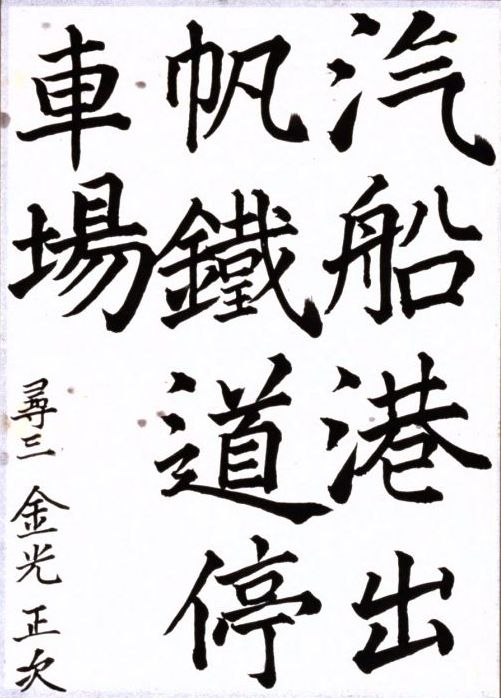 汽船港出
帆鐵道停
車場
尋三 金光正次